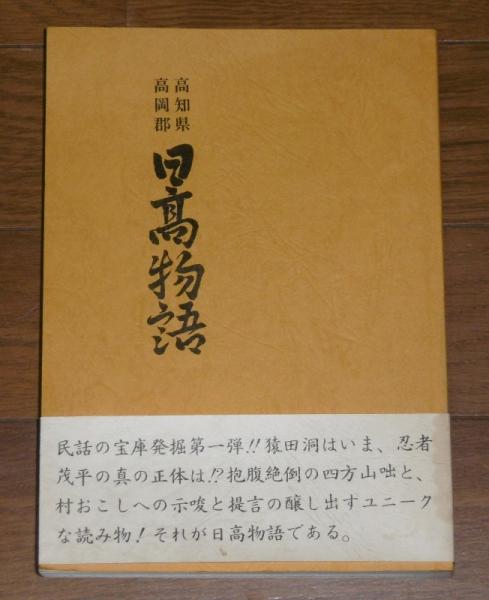 高知県
高岡郡
日高物語
民話の宝庫発掘第一弾!!猿田洞はいま、忍者
茂平の真の正体は!?抱腹絶倒の四方山咄と、
村おこしへの示唆と提言の醸し出すユニーク
な読み物!それが日高物語である。